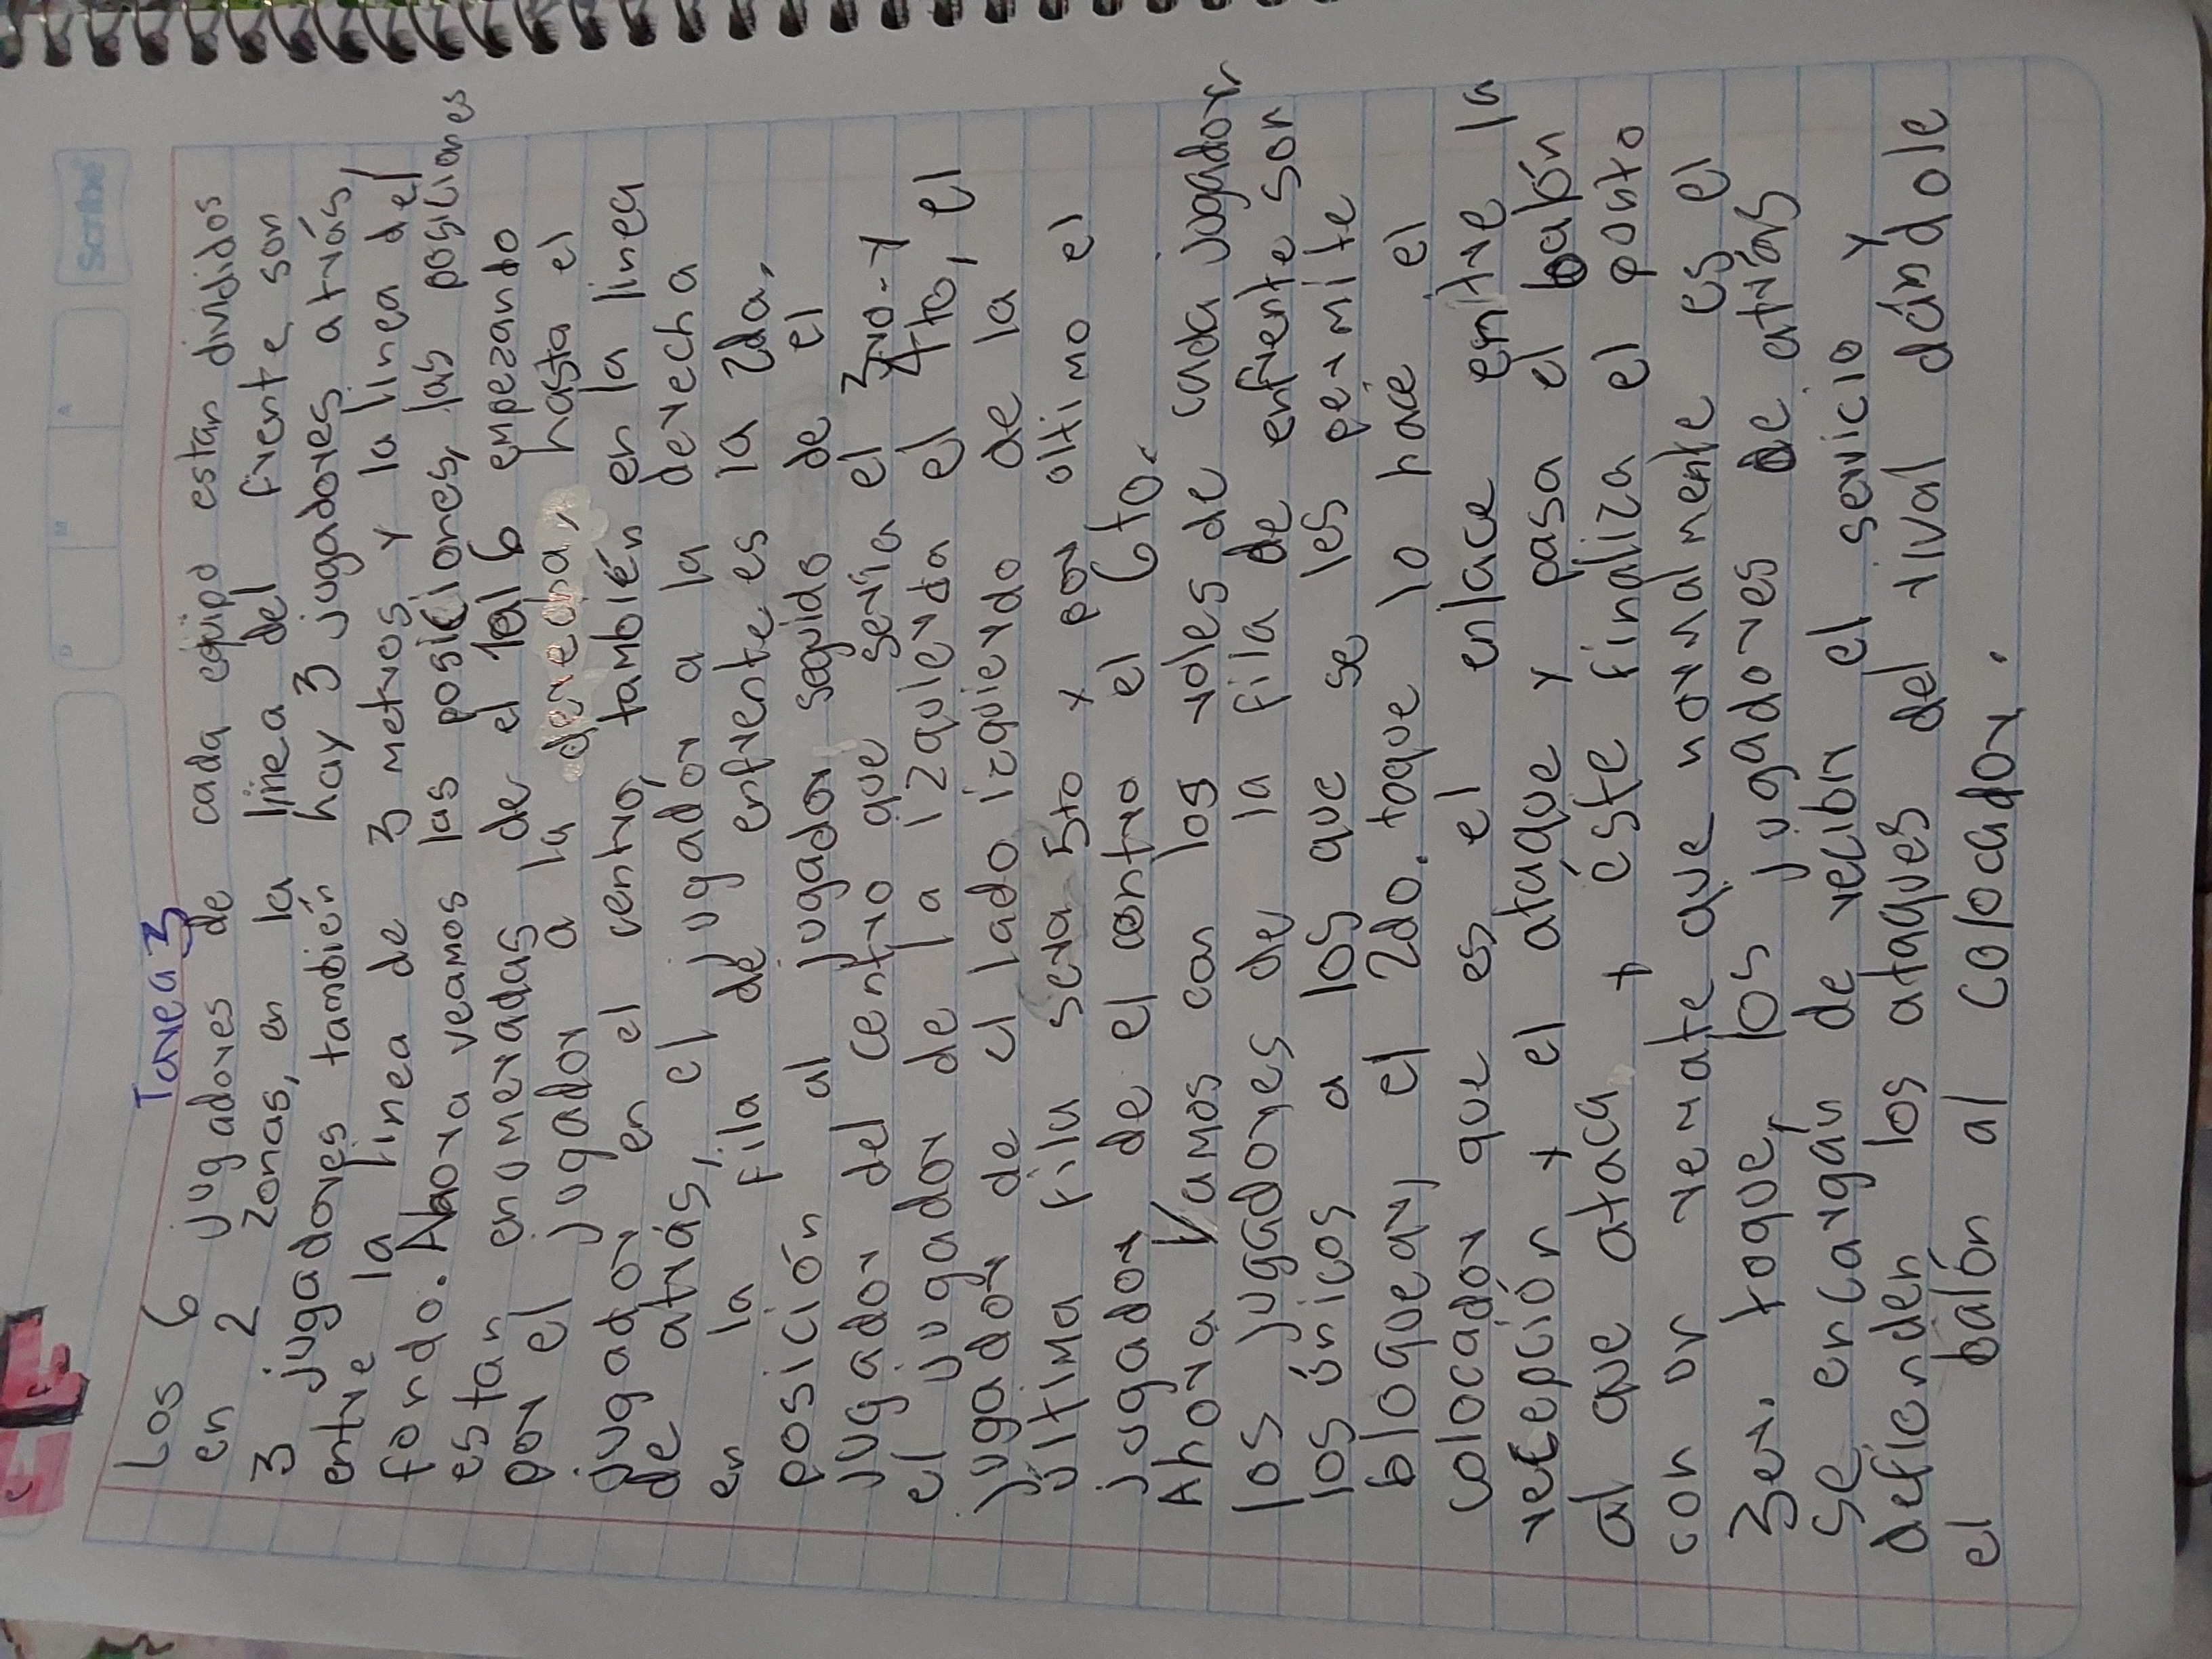 Scribe
D M A
EF
Tarea 3
Los 6 jugadores de cada equipo estan divididos
en 2 zonas, en la línea del frente son
3 jugadores también hay 3 jugadores atrás,
entre la línea de 3 metros y la línea del
fondo. Ahora veamos las posiciones, las posiciones
estan enumeradas de el 1 al 6 empezando
por el jugador a la derecha, hasta el
jugador en el centro, también en la línea
de atrás, el jugador a la derecha
en la fila de enfrente es la 2da.
posición al jugador seguido de el
jugador del centro que sería el 3ro. y
el jugador de la izquierda el 4to, el
jugador de el lado izquierdo de la
última fila sera 5to y por oltimo el
jugador de el centro el 6to.
Ahora Vamos con los roles de cada jugador
los jugadores de la fila de enfrente son
los únicos a los que se les permite
bloquear, el 2do. toque lo hace el
colocador que es el enlace entre la
recepción y el ataque y pasa el balón
al que ataca y éste finaliza el ponto
con on remate que normalmente es el
3er. toque, los jugadores de atrás
se encargan de recibir el servicio y
defienden los ataques del rival dándole
el balón al colocador.